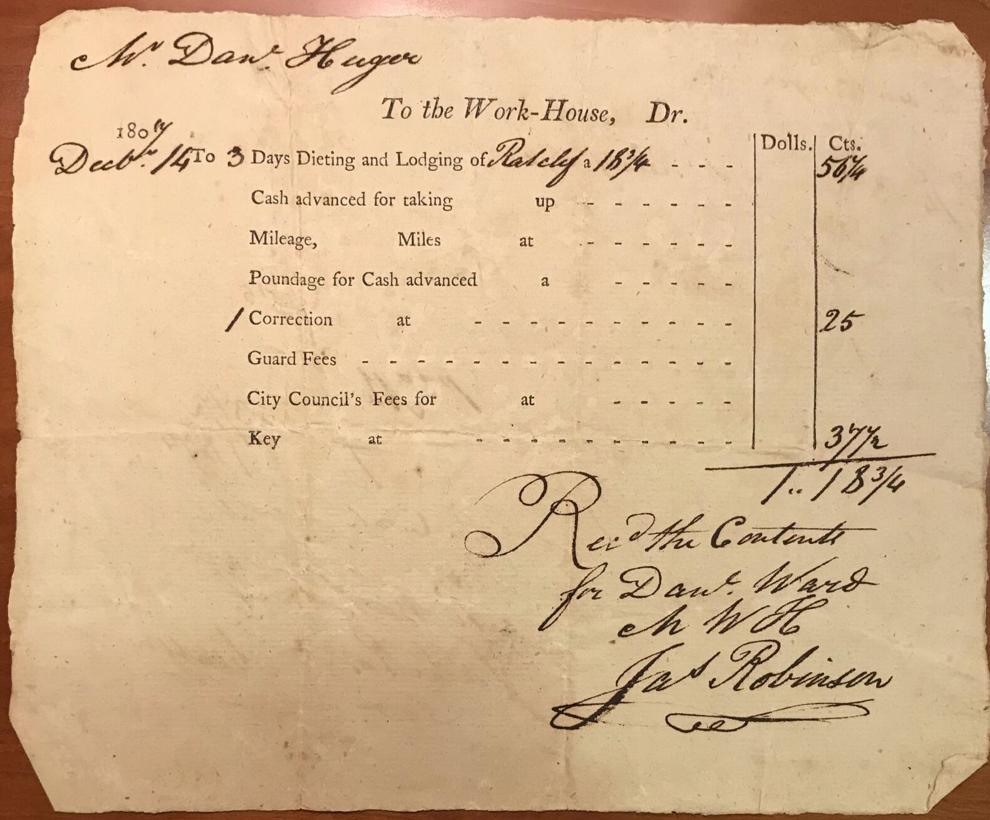 Mr. Danl. Huger
To the Work-House, Dr.
1807 Dolls. Cts.
Decbr. 14 To 3 Days Dieting and Lodging of Ratclif a 18 3/4 - - - 56 1/4
Cash advanced for taking up - - - - - -
Mileage, Miles at - - - - - -
Poundage for Cash advanced a - - - - -
1 Correction at - - - - - - - - - - 25
Guard Fees - - - - - - - - - - - - - -
City Council's Fees for at - - - - -
Key at - - - - - - - - - - 37 1/2
1.. 18 3/4
Recd the Contents
for Danl. Ward
M W H
Jas Robinson